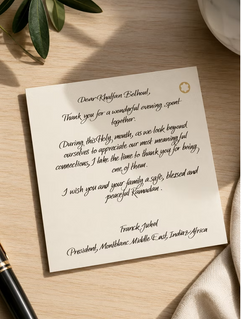 Dear Khalfan Belhoul,
Thank you for a wonderful evening spent
together.
During this Holy month, as we look beyond
ourselves to appreciate our most meaningful
connections, I take the time to thank you for being
one of them.
I wish you and your family a safe, blessed and
peaceful Ramadan.
Franck Juhel
(President, Montblanc Middle East, India & Africa